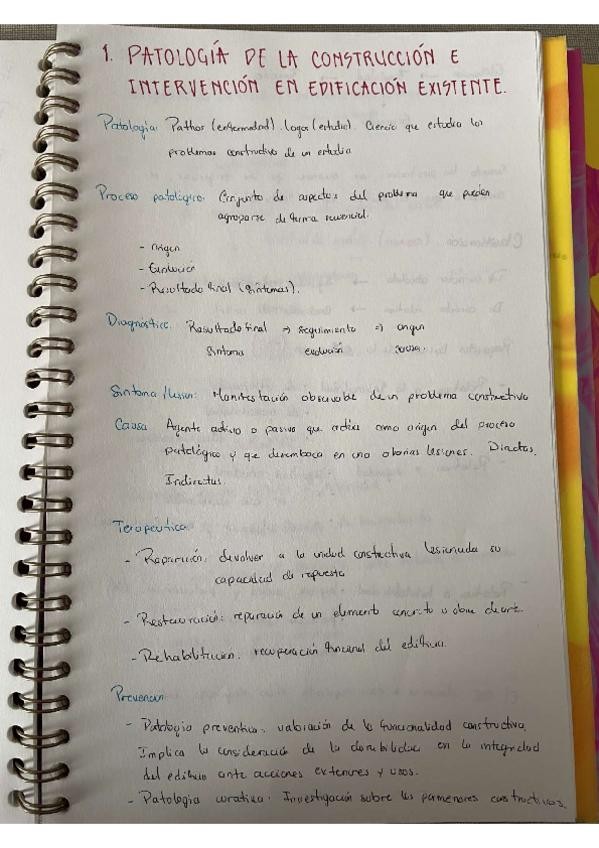 1. PATOLOGÍA DE LA CONSTRUCCIÓN E
INTERVENCIÓN EN EDIFICACIÓN EXISTENTE.
Patología: Pathos (enfermedad). logos (estudio). Ciencia que estudia los
problemas constructivo de un estudio
Proceso patológico: Conjunto de aspectos del problema que pueden
agruparse de forma secuencial.
- Origen
- Evolución
- Resultado final (síntomas).
Diagnóstico: Resultado final => seguimiento => origen
síntoma evolución causa.
Síntoma / Lesion: Manifestación observable de un problema constructivo
Causa Agente activo o pasivo que actúa como origen del proceso
patológico y que desemboca en una o varias lesiones. Directas.
Indirectas.
Terapéutica:
- Reparación: devolver a la unidad constructiva lesionada su
capacidad de respuesta
- Restauración: reparación de un elemento concreto u obra de arte
- Rehabilitación: recuperación funcional del edificio.
Prevención:
- Patología preventiva: valoración de la funcionalidad constructiva.
Implica la consideración de la durabilidad en la integridad
del edificio ante acciones exteriores y usos.
- Patología curativa: Investigación sobre los pormenores constructivos.